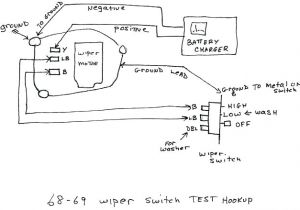 Negative
TO GROUND
ground
positive
BATTERY
CHARGER
Y
LB
B
wiper
motor
GROUND LEAD
Ground TO Metal on
Switch
B
HIGH
LB
LOW
WASH
DBL
OFF
For
washer
wiper
Switch
68-69 wiper switch TEST Hookup